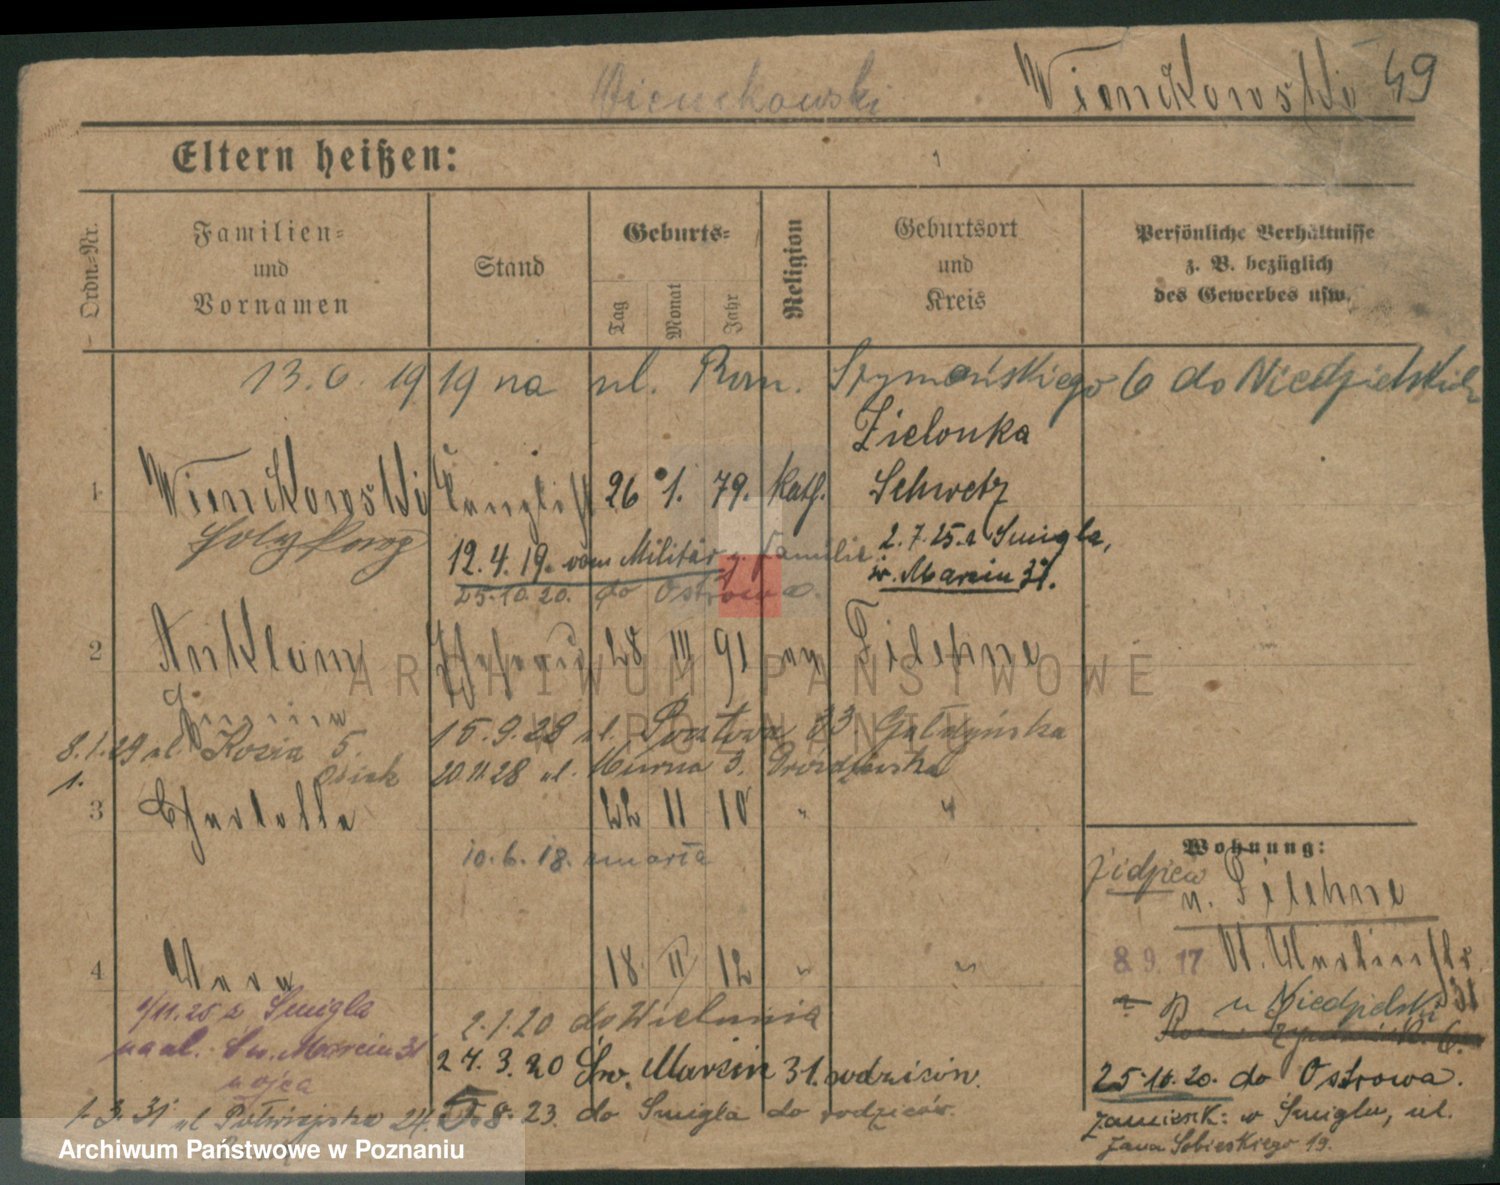 Wienckowski
Wienckowski 49
Eltern heißen:
Ordn.-Nr.
Familien- und Vornamen
Stand
Geburts-
Tag
Monat
Jahr
Religion
Geburtsort und Kreis
Persönliche Verhältnisse z. B. bezüglich des Gewerbes usw.
13.6.1919 na ul. Rom. Szymańskiego 6 do Niedzielskich
Zielonka
1 Wienckowski Kanzlist 26 1. 79. kath. Schwetz
2.7.25 z Śmigla,
12.4.19. vom Militär z. Familie
św. Marcin 31.
25.10.20. do Ostrowa.
2 Anklam Ehefrau 28 III 91 Filehne
15.9.28 ul. Pocztowa 33 Gałdyńska
8.1.29 ul. Kozia 5.
Osiak 20.11.28 ul. Murna 3.
1.
3 Charlotte 22 11 10 " "
10.6.18. zmarła
Wohnung:
n. Filehne
8 9. 17 St. Martinstr. 31
4 18. II 12 " "
1/11.25 z Śmigla
na ul. Św. Marcin 31
u ojca
2.1.20 do Wielunia
u Niedzielski
24.3.20 Św. Marcin 31. rodziców.
25.10.20. do Ostrowa.
1.3.31 ul Półwiejska 24.
8.23. do Śmigla do rodziców.
zamieszk: w Śmiglu, ul.
Jana Sobieskiego 19.
ARCHIWUM PAŃSTWOWE
W POZNANIU
Archiwum Państwowe w Poznaniu